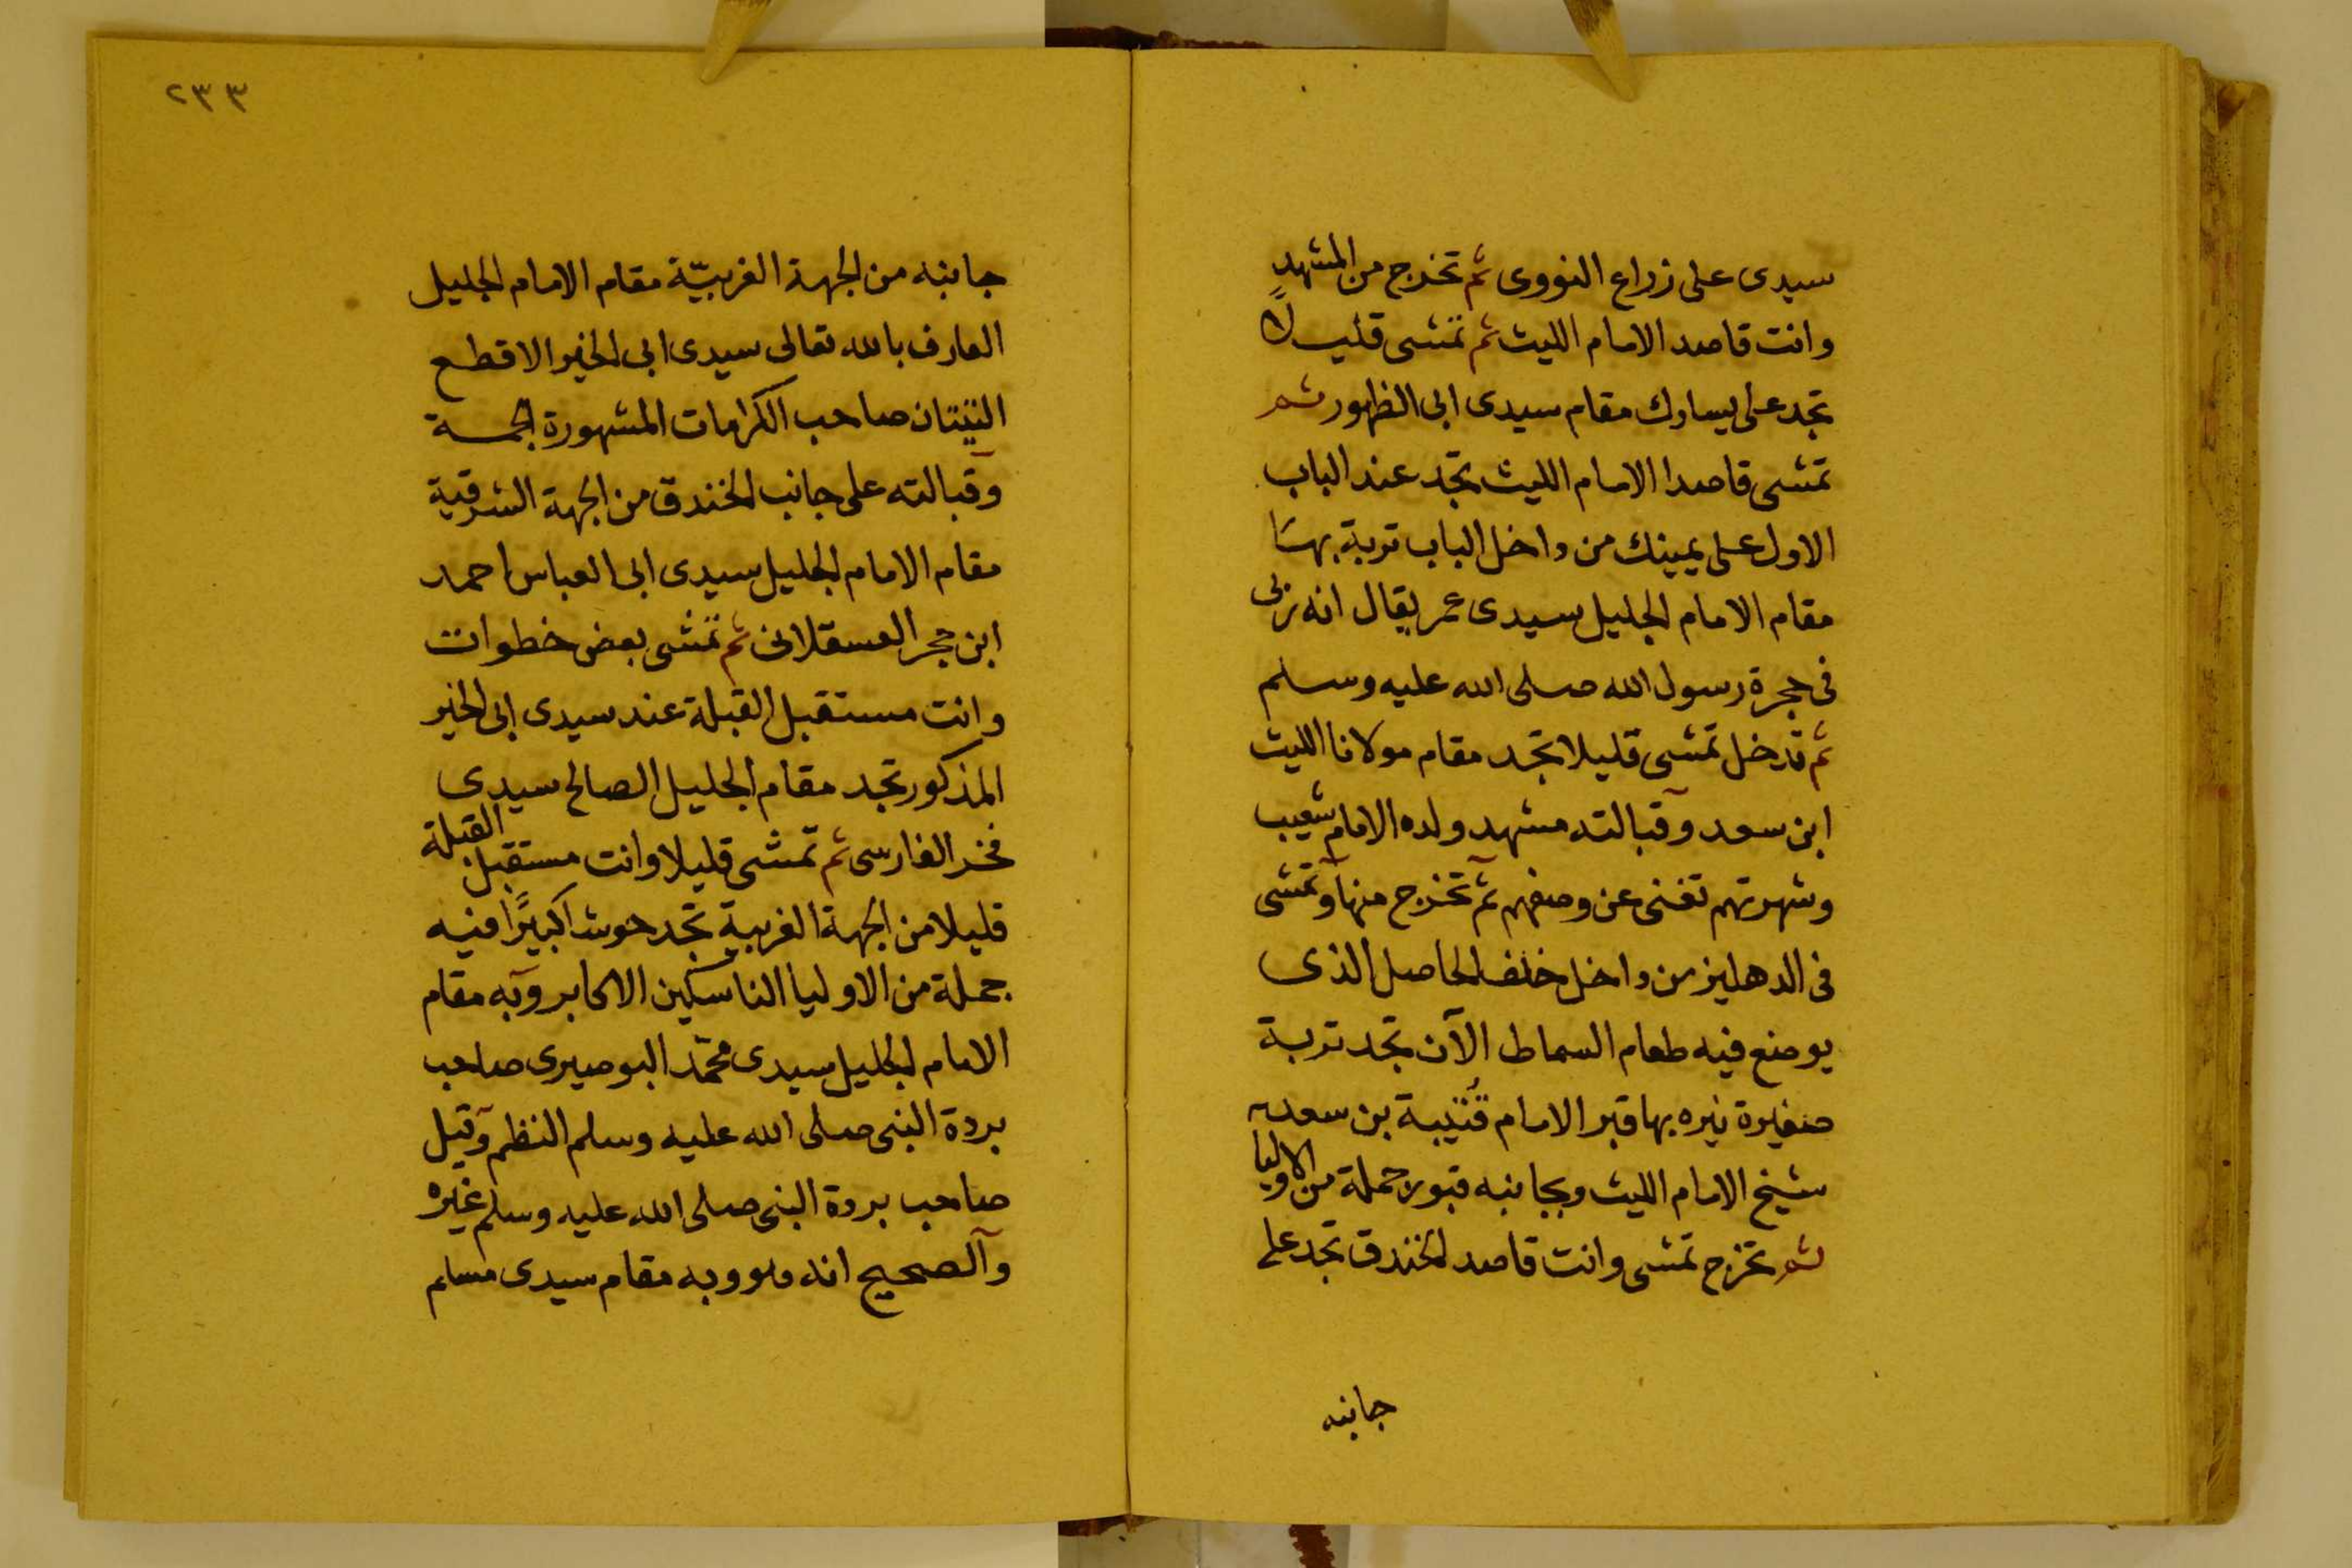 سيدى على زراع النووى ثم تخرج من المشهد
وانت قاصد الامام الليث ثم تمشى قليلاً
تجد على يسارك مقام سيدى ابى الظهور ثم
تمشى قاصدا الامام الليث تجد عند الباب
الاول على يمينك من داخل الباب تربة بها
مقام الامام الجليل سيدى عمر يقال انه ربى
فى حجرة رسول الله صلى الله عليه وسلم
ثم تدخل تمشى قليلا تجد مقام مولانا الليث
ابن سعد وقبالته مشهد ولده الامام شعيب
وشهرتهم تغنى عن وصفهم ثم تخرج منها وتمشى
فى الدهليز من داخل خلف الحاصل الذى
يوضع فيه طعام السماط الآن تجد تربة
صغيرة نيره بها قبر الامام قُتَيبة بن سعد
شيخ الامام الليث وبجانبه قبور جملة من الاوليا
ثم تخرج تمشى وانت قاصد الخندق تجد على
جانبه
٢٣٣
جانبه من الجهة الغربيّة مقام الامام الجليل
العارف بالله تعالى سيدى ابى الخير الاقطع
التينتان صاحب الكرامات المشهورة الجمة
وقبالته على جانب الخندق من الجهة الشرقية
مقام الامام الجليل سيدى ابى العباس احمد
ابن حجر العسقلانى ثم تمشى بعض خطوات
وانت مستقبل القبلة عند سيدى ابى الخير
المذكور تجد مقام الجليل الصالح سيدى
فخر الفارسى ثم تمشى قليلا وانت مستقبل القبلة
قليلا من الجهة الغربية تجد حوشا كبيرًا فيه
جملة من الاوليا الناسكين الاكابر وبه مقام
الامام الجليل سيدى محمّد البوصيرى صاحب
بردة النبى صلى الله عليه وسلم النظم وقيل
صاحب بردة النبى صلى الله عليه وسلم غيره
والصحيح انه هو وبه مقام سيدى مسلم